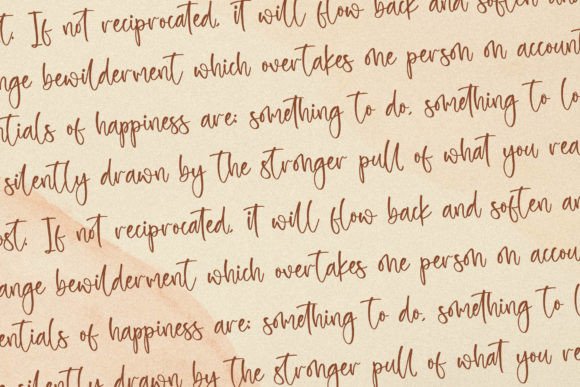 t. If not reciprocated, it will flow back and soften an
nge bewilderment which overtakes one person on account
ntials of happiness are: something to do, something to lo
silently drawn by the stronger pull of what you rea
ost. If not reciprocated, it will flow back and soften an
ange bewilderment which overtakes one person on accou
entials of happiness are: something to do, something to l
silently drawn by the stronger pull of what you re